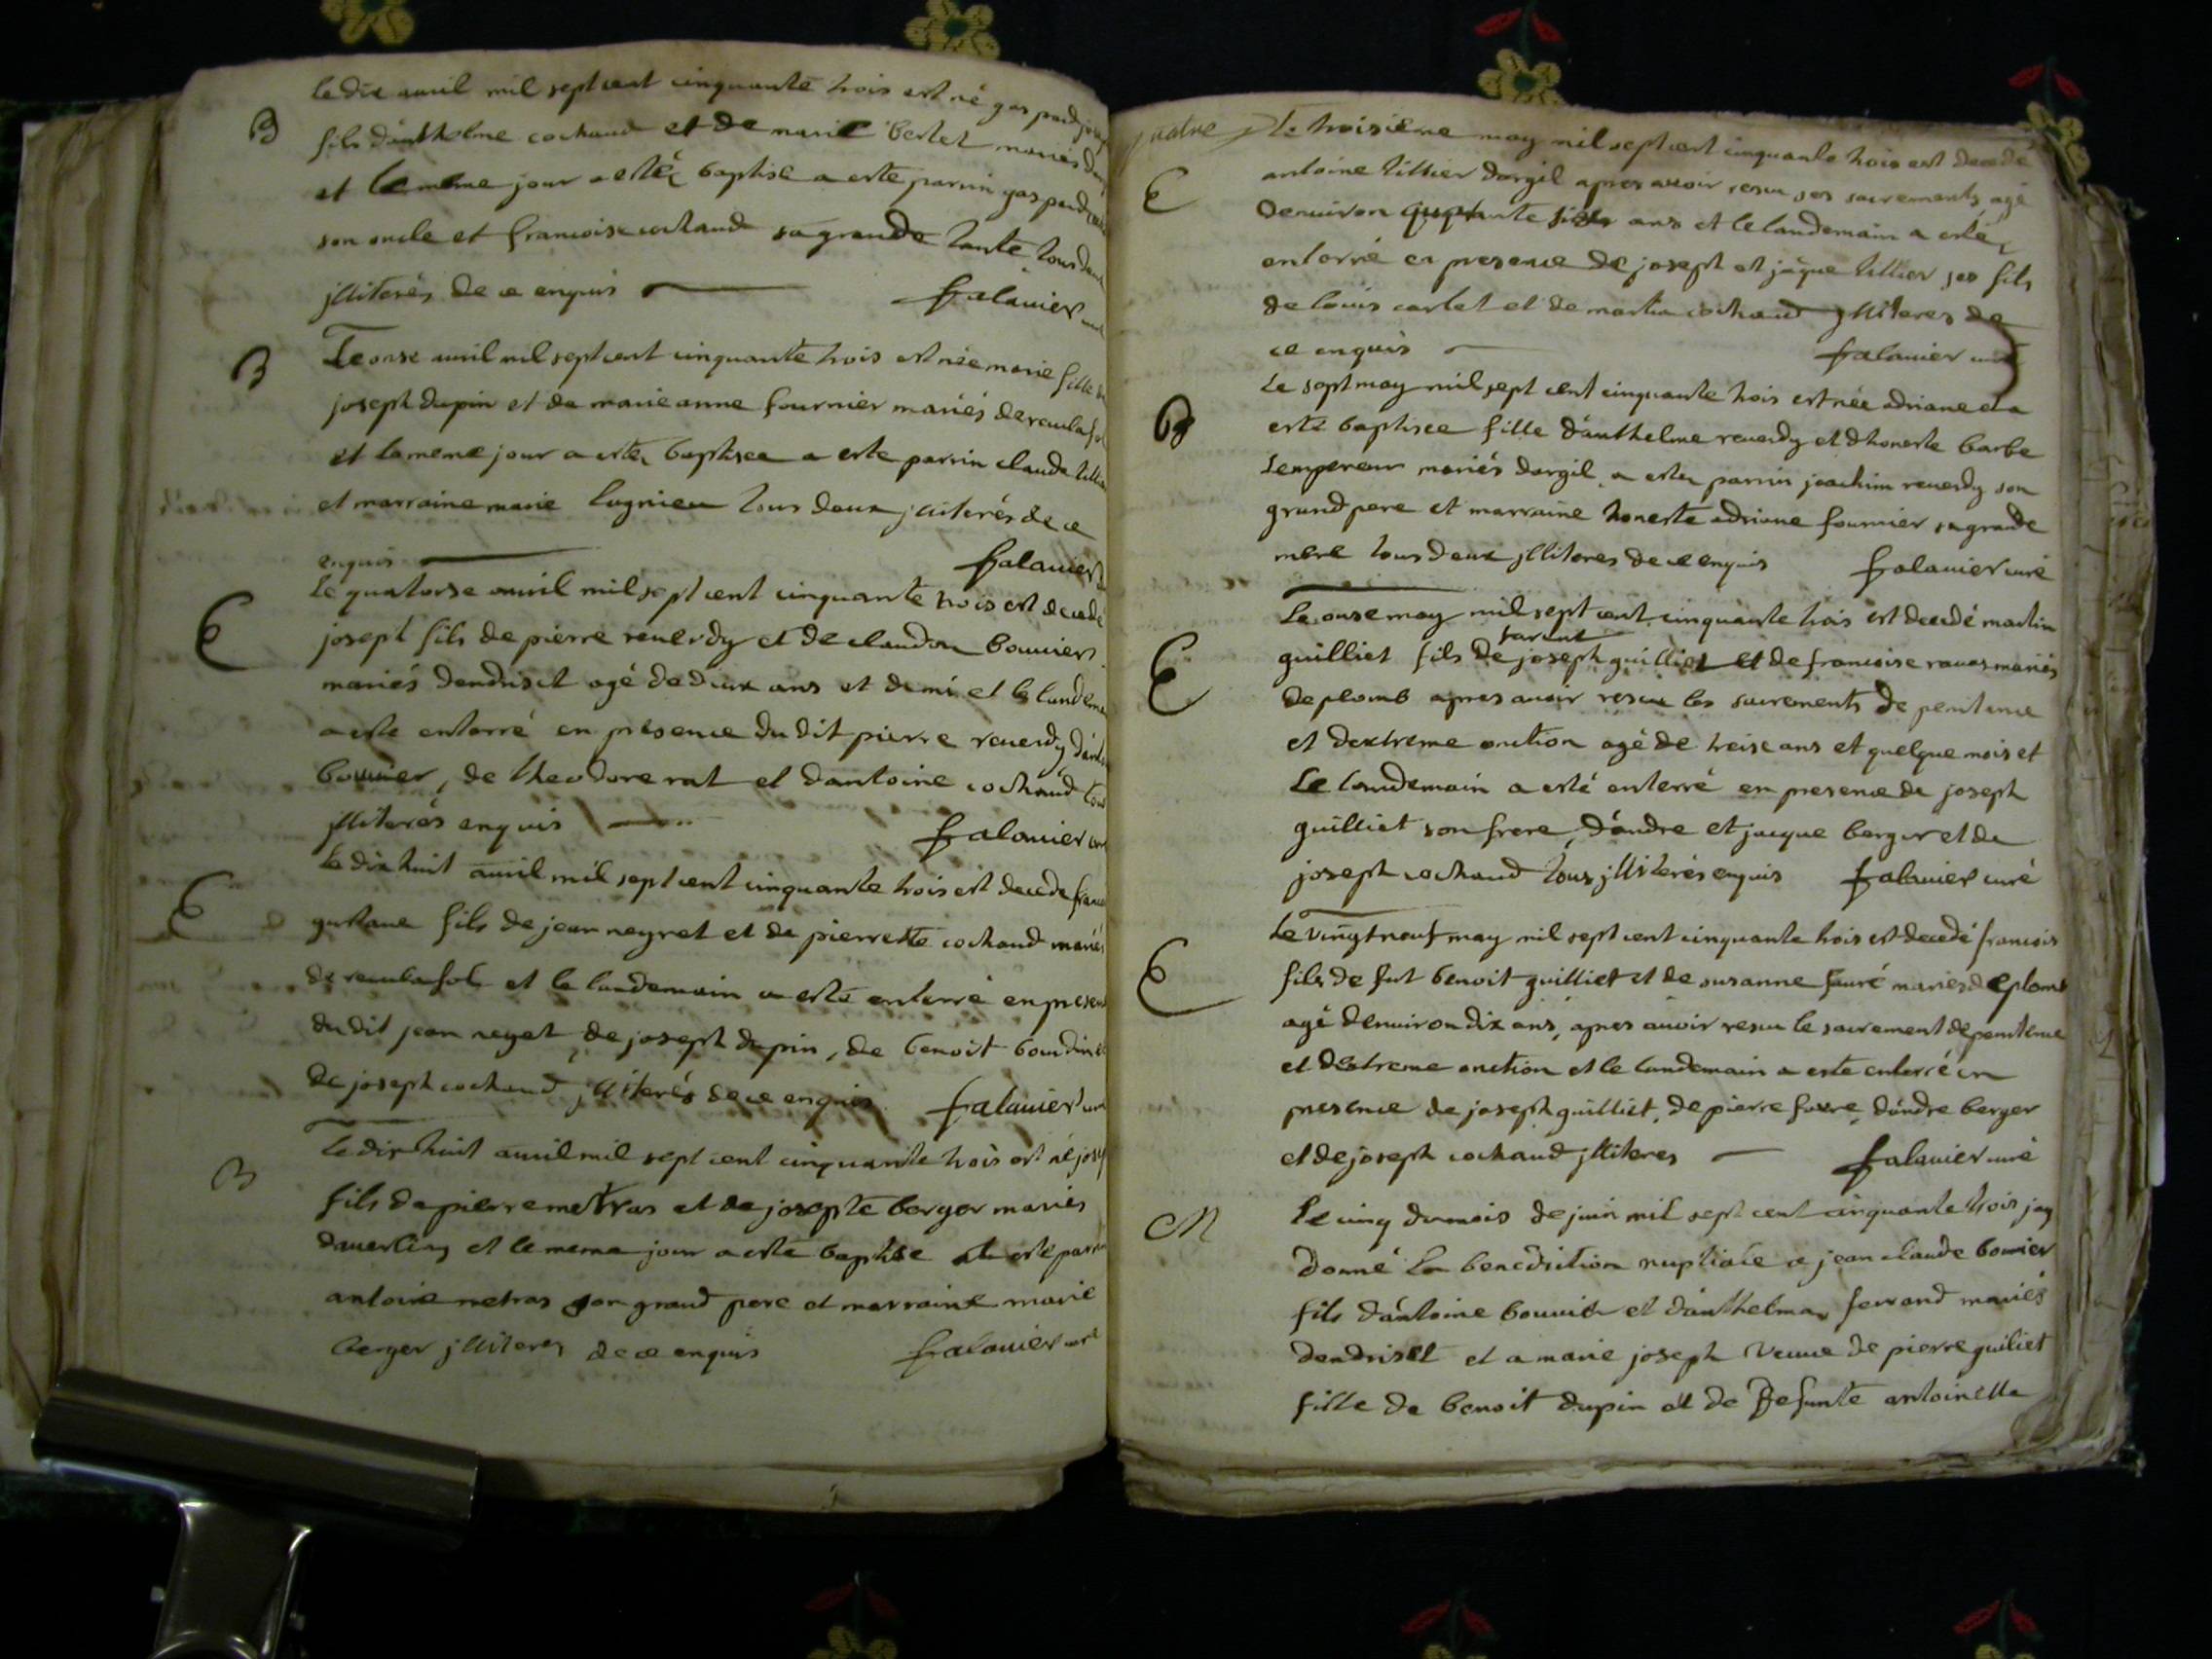 le dix avril mil sept cent cinquante trois est né gaspard
B
fils danthelme cochaud et de marie bertet mariés
et le meme jour a esté baptise a este parrin gaspard
son oncle et francoise cochaud sa grande tante tous deux
jlliterés de ce enquis falavier
B
Le onse avril mil sept cent cinquante trois est née marie fille de
joseph dupin et de marie anne fournier mariés de
et le meme jour a esté baptisee a este parrin claude
et marraine marie lagnieu tous deux jlliterés de ce
enquis falavier
Le quatorse avril mil sept cent cinquante trois est decedé
E
joseph fils de pierre reverdy et de claudon bouvier
mariés dendriset agé de deux ans et demi et le landemain
a este enterré en presence du dit pierre reverdy
bouvier, de theodore rat et dantoine cochaud tous
jlliterés enquis falavier
le dix huit avril mil sept cent cinquante trois est decede
E
gustave fils de jean neyret et de pierrette cochaud mariés
de et le landemain a esté enterré en presence
du dit jean neyret, de joseph dupin, de benoit
de joseph cochaud jlliterés de ce enquis falavier
Le dix huit avril mil sept cent cinquante trois est né
B
fils de pierre metras et de josepte berger mariés
et le meme jour a esté baptise a esté parrin
antoine metras son grand pere et marraine marie
berger jlliteres de ce enquis falavier curé
quatre
Le troisieme may mil sept cent cinquante trois est decedé
E
antoine tillier dargil apres avoir resu ses sacrements agé
denviron ans et le landemain a esté
enterré en presence de joseph et jaque tillier ses fils
de louis cartet et de martin cochaud jlliteres de
ce enquis falavier curé
Le sept may mil sept cent cinquante trois est née adriane et a
B
esté baptisee fille danthelme reverdy et dhoneste barbe
Lempereur mariés dargil a este parrin joachim reverdy son
grand pere et marraine honeste adriane fournier sa grande
mere tous deux jlliteres de ce enquis falavier curé
Le onse may mil sept cent cinquante trois est decedé martin
E
guilliet fils de joseph guilliet et de francoise mariés
de plomb apres avoir resu les sacrements de penitence
et dextreme onction agé de treise ans et quelque mois et
Le landemain a esté enterré en presence de joseph
guilliet son frere, dandre et jacque berger et de
joseph cochaud tous jlliterés enquis falavier curé
Le vingt neuf may mil sept cent cinquante trois est decedé francois
E
fils de fut benoit guilliet et de susanne favré mariés de plomb
agé denviron dix ans, apres avoir resu le sacrement de penitence
et dextreme onction et le landemain a este enterré en
presence de joseph guilliet, de pierre favre, dandre berger
et de joseph cochaud jlliteres falavier curé
M
Le cinq du mois de juin mil sept cent cinquante trois jay
donné la benediction nuptiale a jean claude bouvier
fils dantoine bouvier et danthelma ferrand mariés
dendriset et a marie joseph veuve de pierre guiliet
fille de benoit dupin et de defunte antoinette